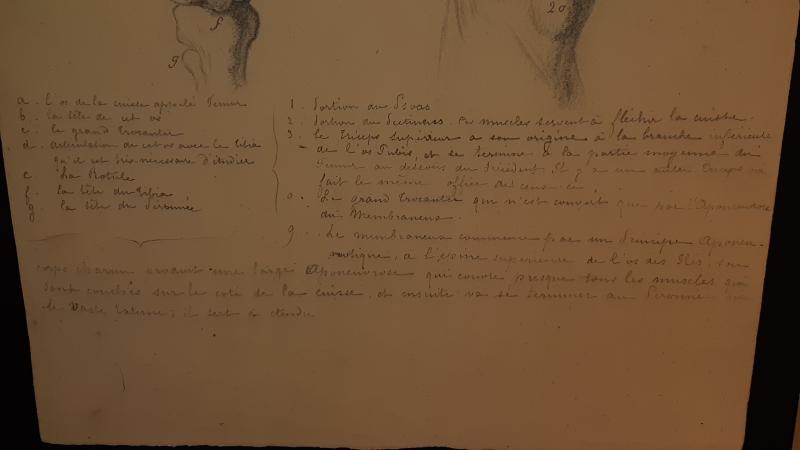 f
g
20
a. l'os de la cuisse appelé Femur
b. la tête de cet os
c. le grand Trocanter
d. articulation de cet os avec le tibia
qu'il est très necessaire d'étudier
e. La Rotule
f. la tête du Tibia
g. la tête du Péronnée
1. Portion du Psoas
2. Portion du Pectineus. Ces muscles servent à fléchir la cuisse.
3. Le Triceps Supérieur a son origine à la branche inférieure
de l'os Pubis, et se termine à la partie moyenne du
Femur au dessous du précédent. Il y a un autre Triceps qui
fait le même office de ceux-ci.
Le grand Trocanter qui n'est couvert que par l'Aponeuvrose
du Membraneux.
9. Le membraneux commence par un Principe Aponeu-
rotique, à l'épine supérieure de l'os des Iles, son
corps charnu produit une large Aponeuvrose qui couvre presque tous les muscles qui
sont couchés sur le coté de la cuisse, et ensuite va se terminer au Peronnée
le Vaste Externe; il sert à étendre